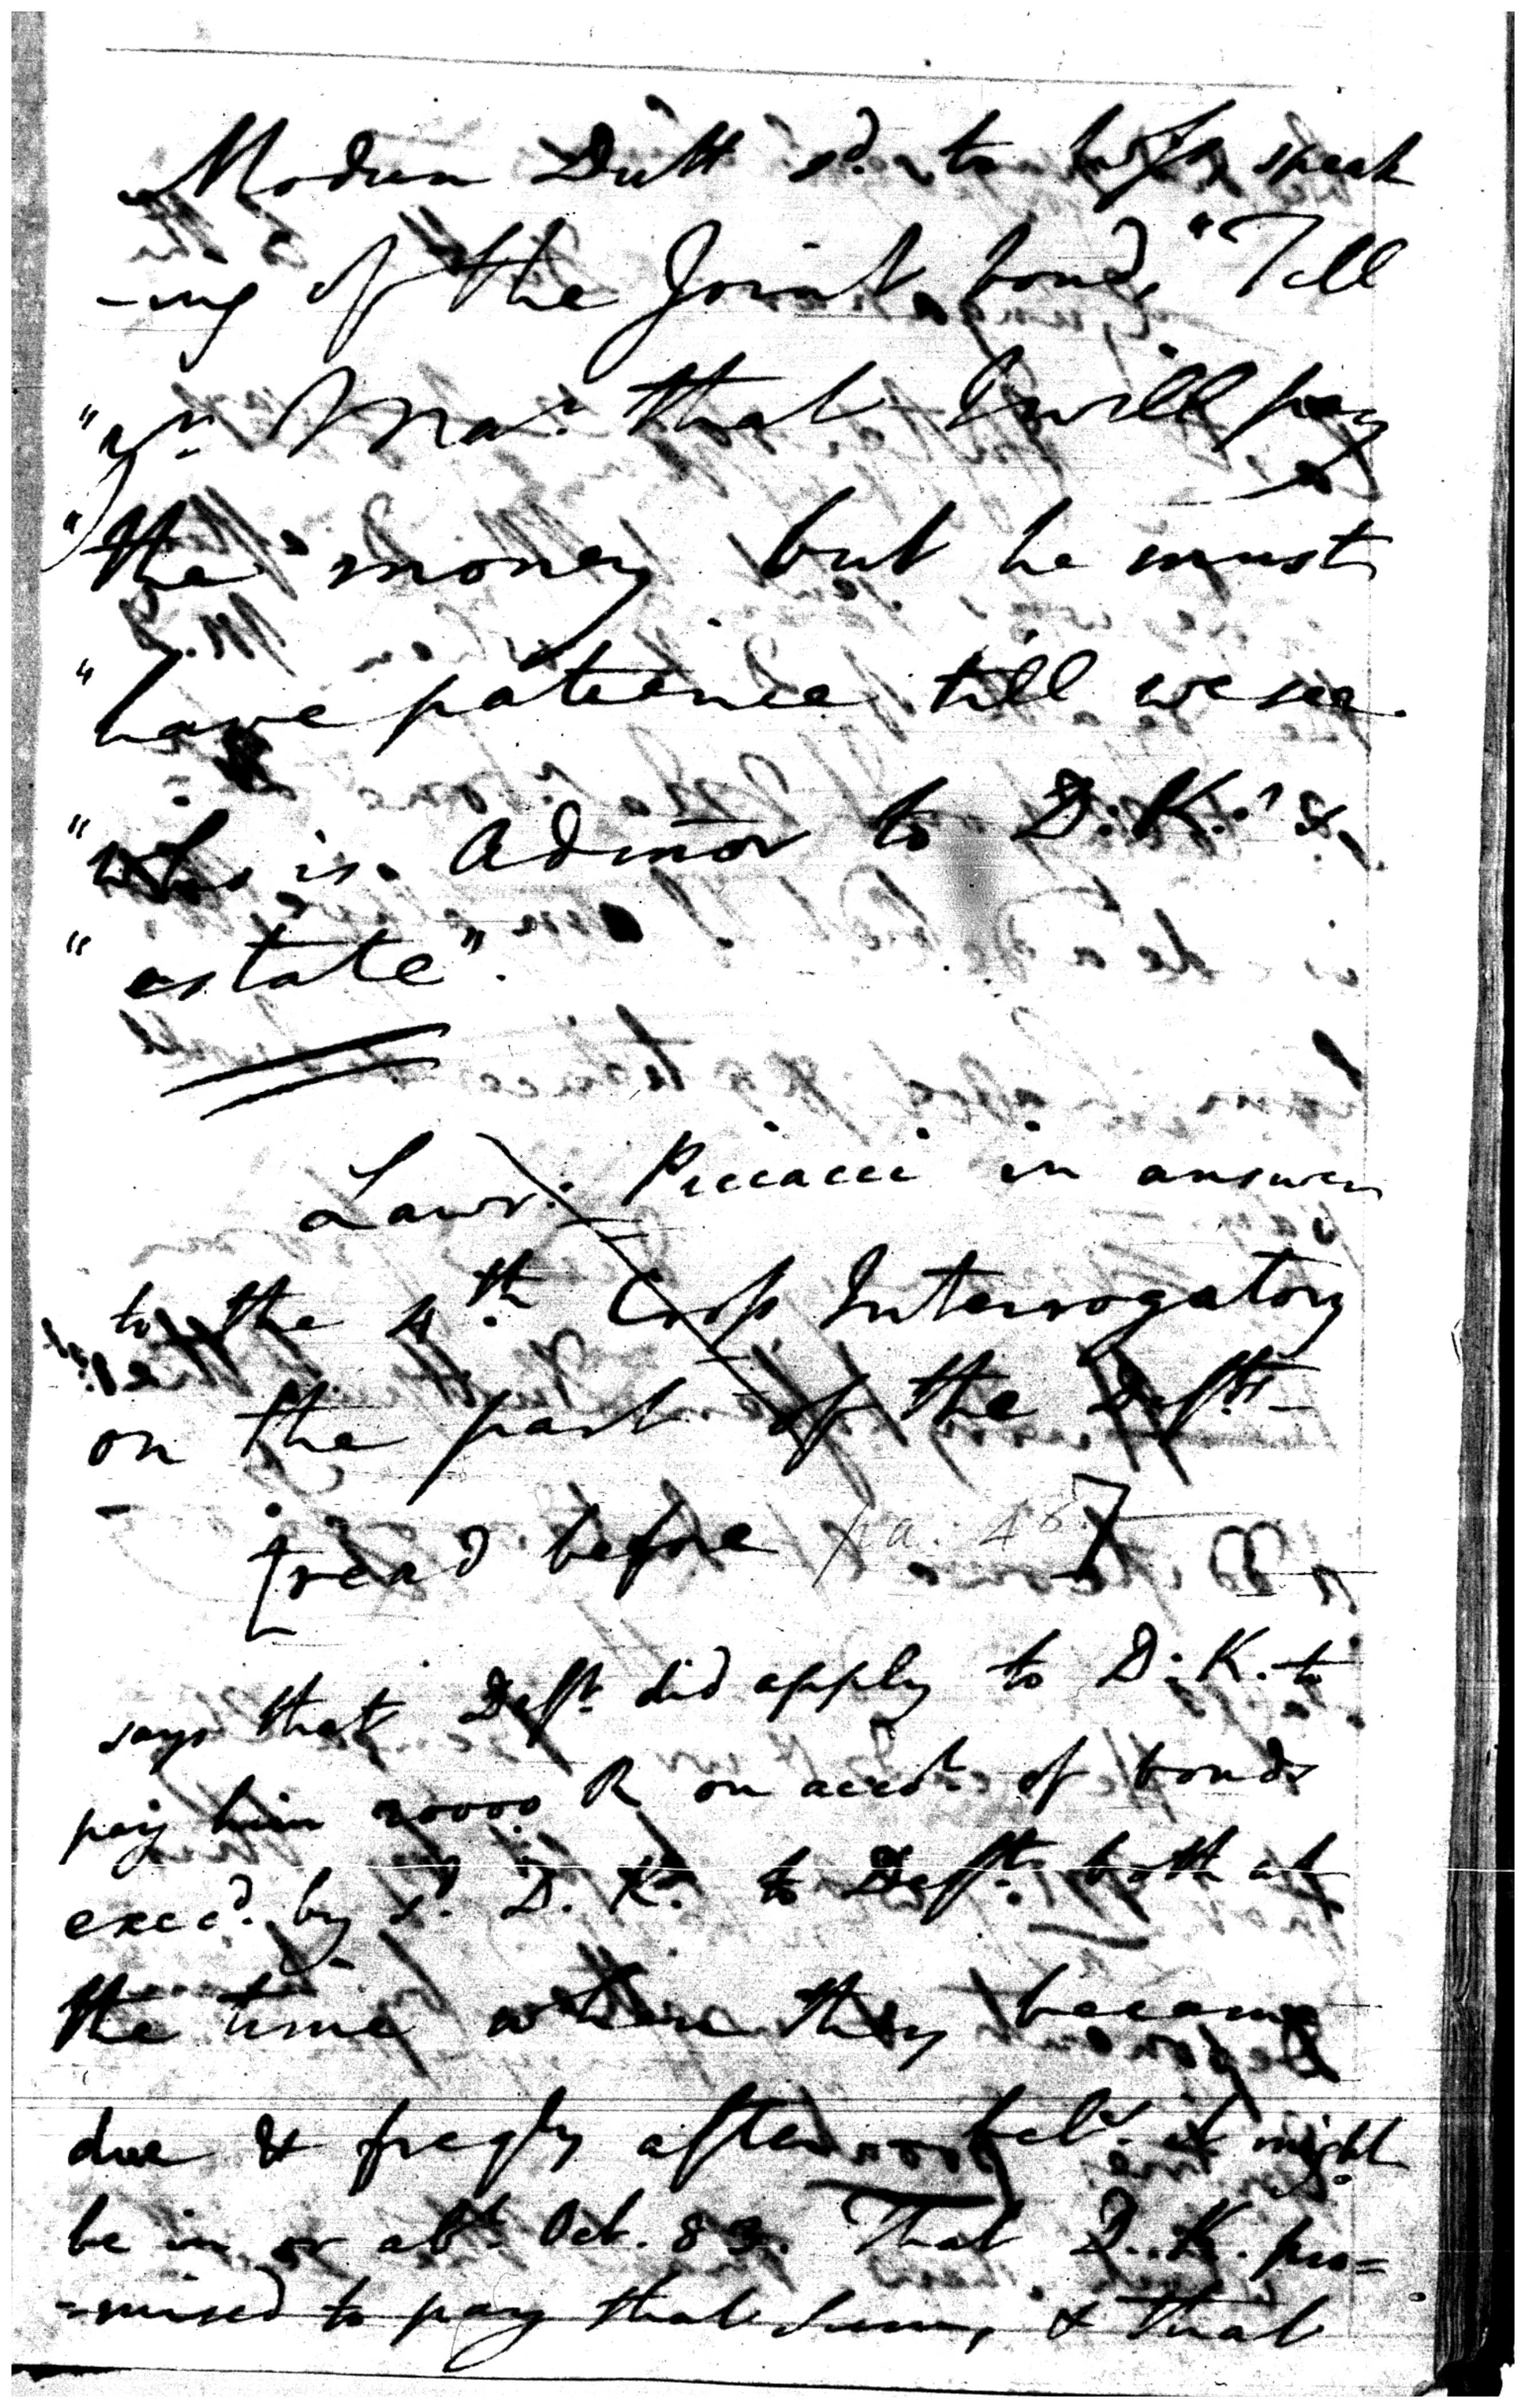 Modun Dutt sd. to him speak
-ing of the Joint bond, "Tell
"yr. Mar. that I will pay
"the money but he must
"have patience till we see
"who is Admor to D. K.'s
"estate".
Lawr: Piccacci in answer
to the 4.th Cross Interrogatory
on the part of the Defts
[read before pa. 48]
says that Deft. did apply to D. K. to
pay him 20000 R on acct. of bonds
execd. by sd. D. K. to Deft. both at
the time when they became
due & freqly afterwards, it might
be in or abt. Oct. 83. That D. K. pro=
=mised to pay that sum, & that